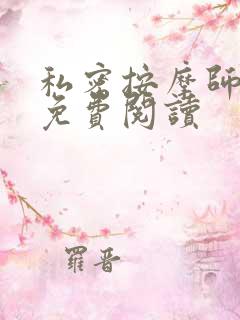 私密按摩師
免費閱讀
羅晋